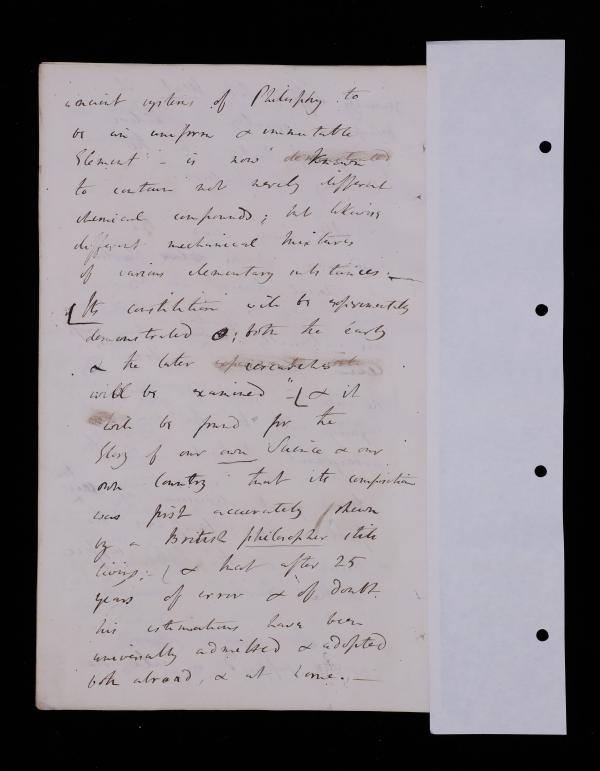 ancient systems of Philosophy to
be an uniform & immutable
Element - is now known
to contain not merely different
chemical compounds; but likewise
different mechanical mixtures
of various elementary substances. —
Its constitution will be experimentally
demonstrated; both the early
& the later researches
will be examined - & it
will be found for the
Glory of our own Science & our
own Country that its composition
was first accurately shewn
by a British philosopher still
living; - & that after 25
years of error & of doubt
his estimations have been
universally admitted & adopted
both abroad, & at home. —